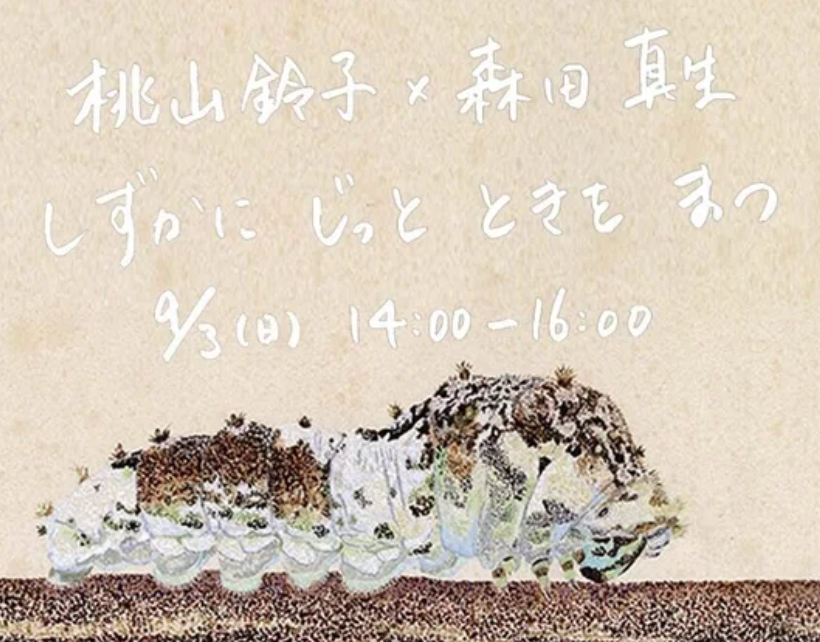 桃山鈴子×森田真生
しずかに じっと ときを まつ
9/3(日) 14:00−16:00